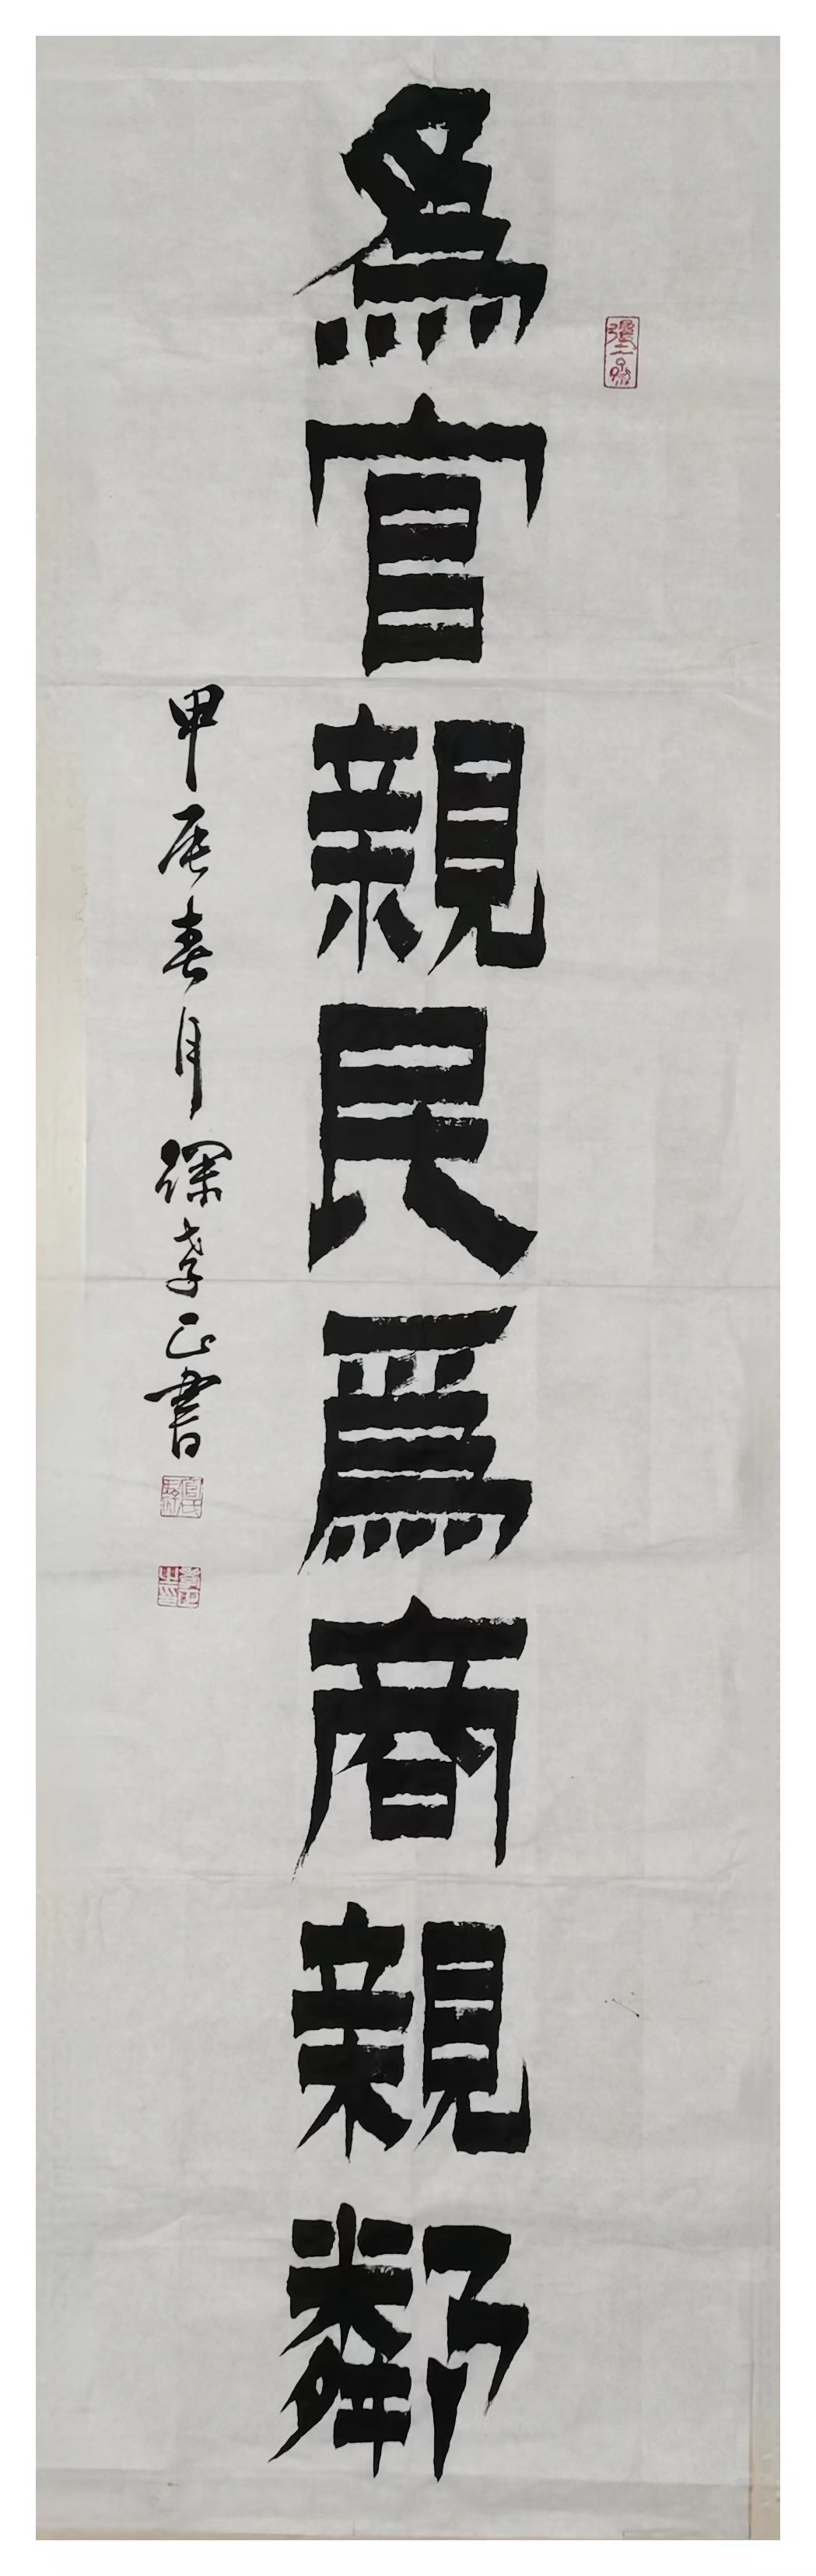 為官親民為商親鄰
甲辰春月深孝正書